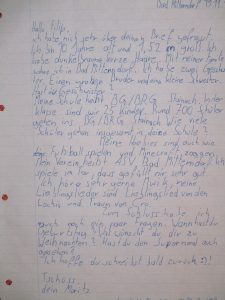 Bad Mitterndorf, 19.11.
Hallo Filip,
ich habe mich sehr über deinen Brief gefreut.
Ich bin 10 Jahre alt und 1,52 m groß. Ich
habe dunkelbraune kurze Haare. Mit meiner Familie
wohne ich in Bad Mitterndorf. Ich habe zwei Geschwi-
ster. Einen großen Bruder und eine kleine Schwester.
Meine Schule heißt BG/BRG Stainach. In der
Klasse sind wir 25 Kinder. Rund 700 Schüler
gehen ins BG/BRG Stainach. Wie viele
Schüler gehen insgesamt in deine Schule?
Meine Hobbies sind auch wie
deine Fußball spielen und Minecraft zocken.
Mein Verein heißt ASV Bad Mitterndorf. Ich
spiele im Tor, das gefällt mir sehr gut.
Ich höre sehr gerne Musik, meine
Lieblingslieder sind
und
Zum Schluss habe ich
auch noch ein paar Fragen. Wann hast du
Geburtstag? Was wünscht du dir zu
Weihnachten? Hast du den Supermond auch
gesehen?
Ich hoffe du schreibst bald zurück :)!
Tschüss
dein Moritz